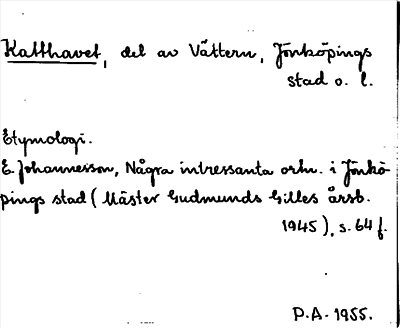 Katthavet, del av Vättern, Jönköpings
stad o. l.
Etymologi.
E. Johannesson, Några intressanta ortn. i Jönkö-
pings stad (Mäster Gudmunds Gilles årsb.
1945), s. 64 f.
P.A. 1955.